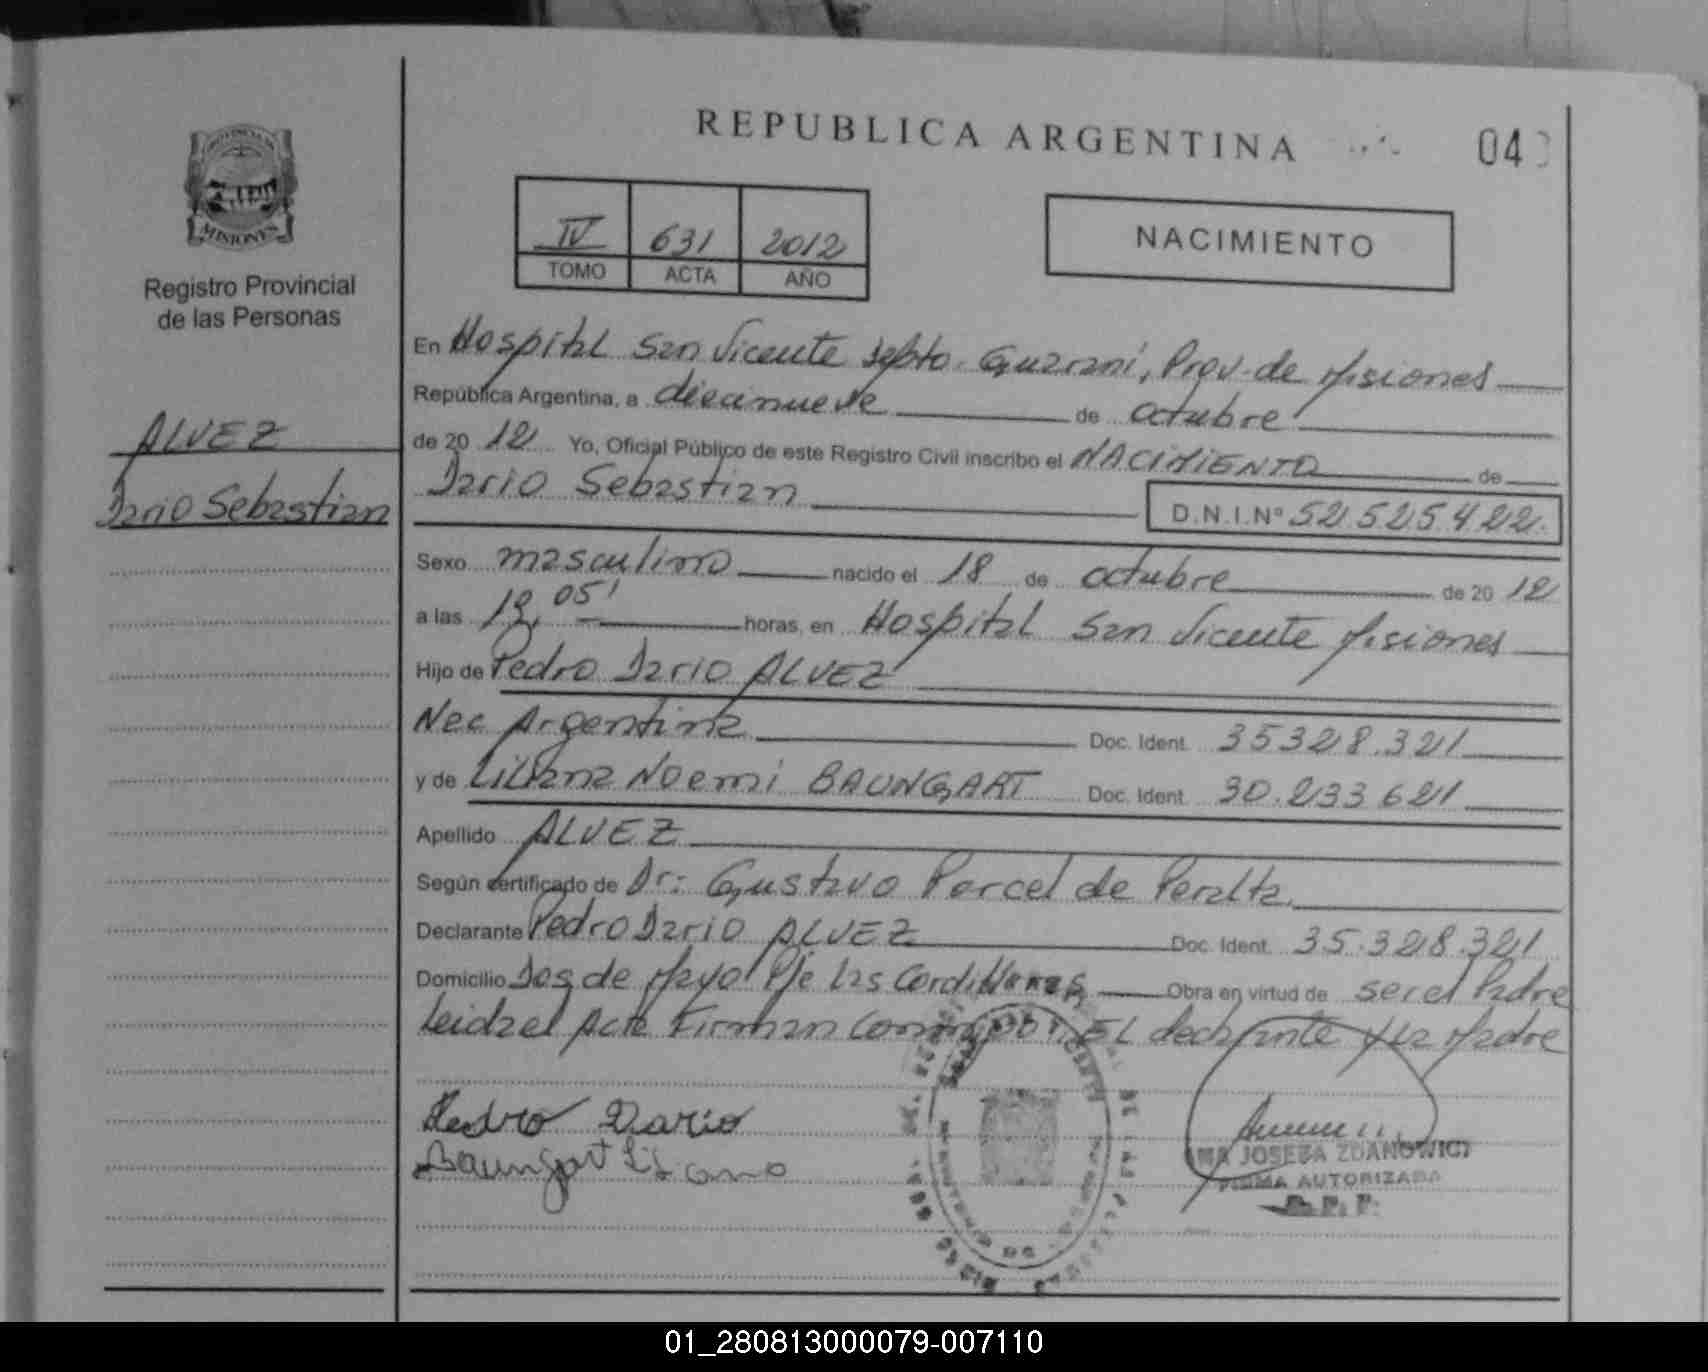 REPUBLICA ARGENTINA
04
PROVINCIA DE
MISIONES
Registro Provincial
de las Personas
IV 631 2012
TOMO ACTA AÑO
NACIMIENTO
ALVEZ
Dario Sebastian
En Hospital San Vicente Depto. Guarani, Prov. de Misiones
República Argentina, a diecinueve de octubre
de 20 12 Yo, Oficial Público de este Registro Civil inscribo el NACIMIENTO de
Dario Sebastian D.N.I.Nº 52.525.422.
Sexo masculino nacido el 18 de octubre de 20 12
a las 12,05' horas, en Hospital San Vicente Misiones
Hijo de Pedro Dario ALVEZ
Nac Argentina Doc. Ident. 35328.321
y de Liliana Noemi BAUNGART Doc. Ident. 30.233621
Apellido ALVEZ
Según certificado de Dr: Gustavo Porcel de Peralta
Declarante Pedro Dario ALVEZ Doc. Ident. 35.328.321
Domicilio Dos de Mayo Pje las Cordilleras Obra en virtud de ser el Padre
Leida el Acta Firman Conmigo: EL declarante y la Madre
Pedro Dario
Baungart Liliana
JOSEFA ZDANOWICZ
FIRMA AUTORIZADA
R.P.P.
01_280813000079-007110